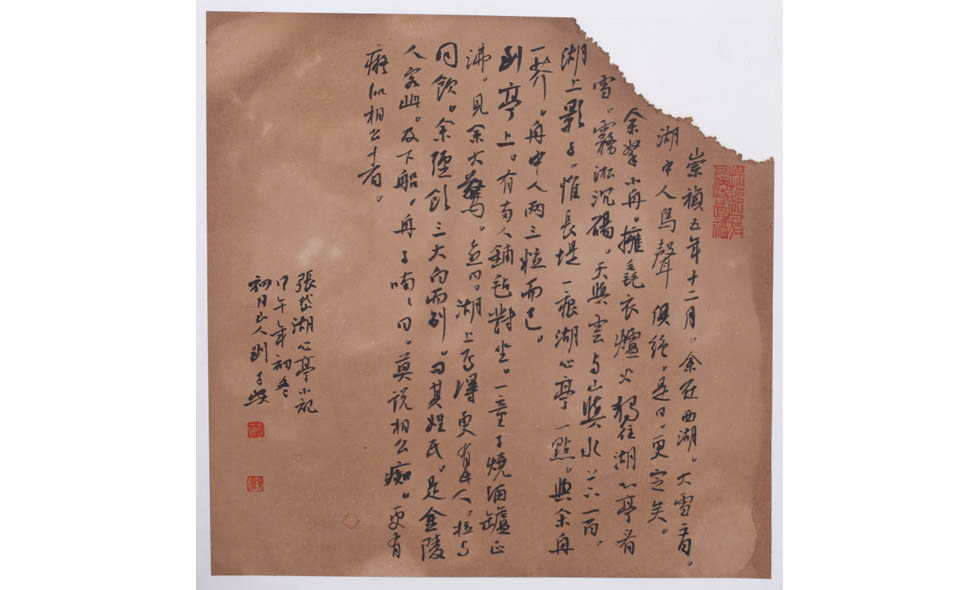 崇禎五年十二月。余在西湖。大雪三日。
湖中人鳥聲俱絕。是日。更定矣。
余拏小舟。擁毳衣爐火獨往湖心亭看
雪。霧淞沆碭。天與雲与山與水上下一白。
湖上影子。惟長堤一痕湖心亭一點。與余舟
一芥。舟中人兩三粒而已。
到亭上。有兩人鋪毡對坐。一童子燒酒爐正
沸。見余大驚。喜曰。湖上焉得更有此人。拉与
同飲。余強飲三大白而別。問其姓氏。是金陵
人客此。及下船。舟子喃喃曰。莫說相公痴。更有
癡似相公者。
張岱湖心亭小記
戊午年初冬
初月山人劉子